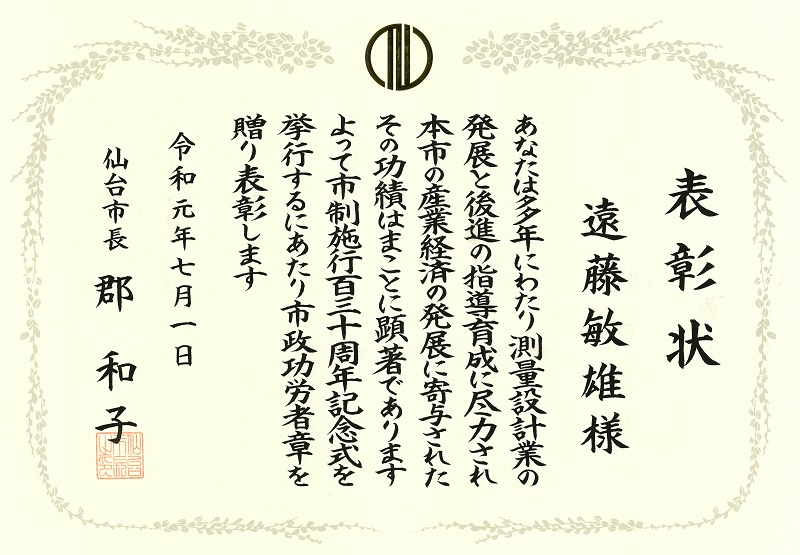 表彰状
遠藤敏雄様
あなたは多年にわたり測量設計業の
発展と後進の指導育成に尽力され
本市の産業経済の発展に寄与された
その功績はまことに顕著であります
よって市制施行百三十周年記念式を
挙行するにあたり市政功労者章を
贈り表彰します
令和元年七月一日
仙台市長 郡 和子